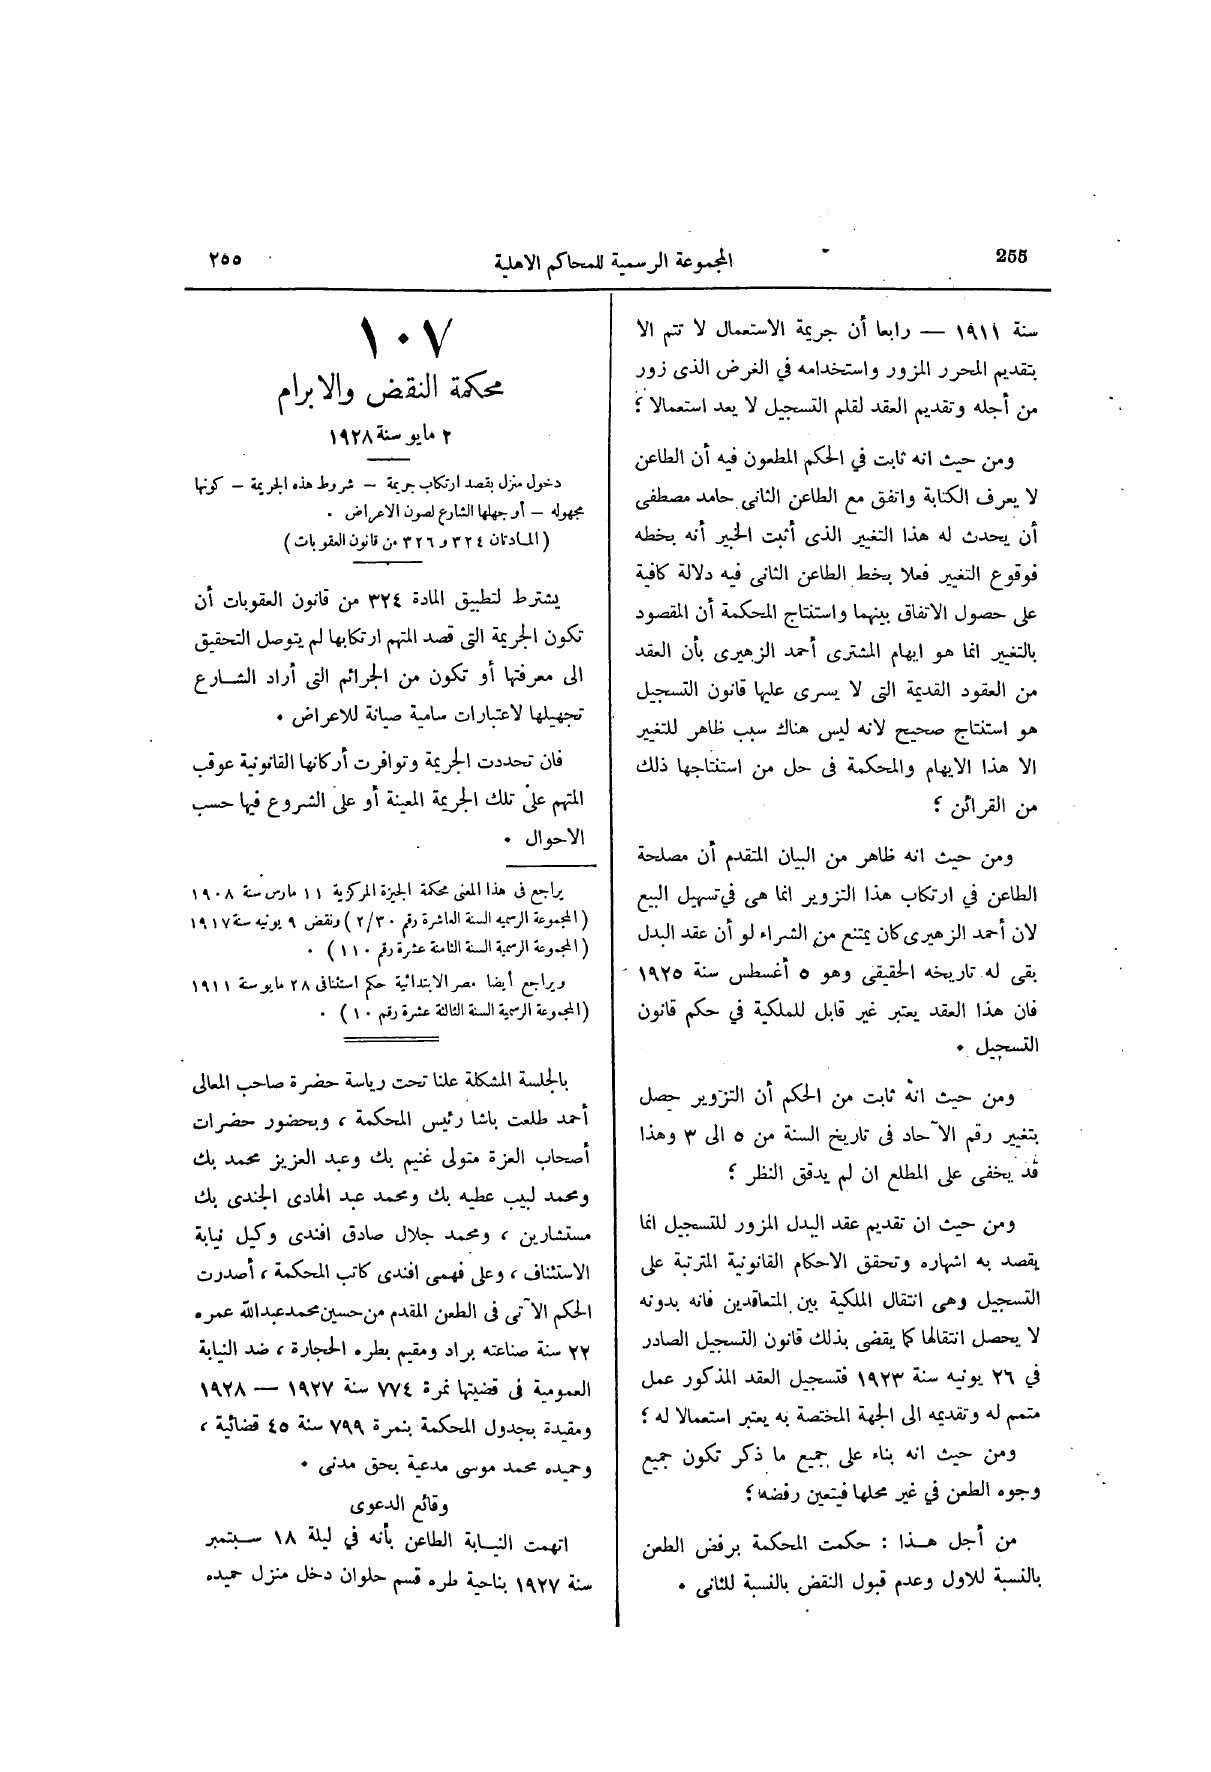 255
المجموعة الرسمية للمحاكم الاهلية
٢٥٥
سنة ١٩١١ — رابعا أن جريمة الاستعمال لا تتم الا
بتقديم المحرر المزور واستخدامه في الغرض الذى زور
من أجله وتقديم العقد لقلم التسجيل لا يعد استعمالا ؛
ومن حيث انه ثابت في الحكم المطعون فيه أن الطاعن
لا يعرف الكتابة واتفق مع الطاعن الثانى حامد مصطفى
أن يحدث له هذا التغيير الذى أثبت الخبير أنه بخطه
فوقوع التغيير فعلا بخط الطاعن الثانى فيه دلالة كافية
على حصول الاتفاق بينهما واستنتاج المحكمة أن المقصود
بالتغيير انما هو ايهام المشترى أحمد الزهيرى بأن العقد
من العقود القديمة التى لا يسرى عليها قانون التسجيل
هو استنتاج صحيح لانه ليس هناك سبب ظاهر للتغيير
الا هذا الايهام والمحكمة فى حل من استنتاجها ذلك
من القرائن ؛
ومن حيث انه ظاهر من البيان المتقدم أن مصلحة
الطاعن في ارتكاب هذا التزوير انما هى في تسهيل البيع
لان أحمد الزهيرى كان يمتنع من الشراء لو أن عقد البدل
بقى له تاريخه الحقيقى وهو ٥ أغسطس سنة ١٩٢٥
فان هذا العقد يعتبر غير قابل للملكية في حكم قانون
التسجيل .
ومن حيث انه ثابت من الحكم أن التزوير حصل
بتغيير رقم الآحاد فى تاريخ السنة من ٥ الى ٣ وهذا
قد يخفى على المطلع ان لم يدقق النظر ؛
ومن حيث ان تقديم عقد البدل المزور للتسجيل انما
يقصد به اشهاره وتحقق الاحكام القانونية المترتبة على
التسجيل وهى انتقال الملكية بين المتعاقدين فانه بدونه
لا يحصل انتقالها كما يقضى بذلك قانون التسجيل الصادر
في ٢٦ يونيه سنة ١٩٢٣ فتسجيل العقد المذكور عمل
متمم له وتقديمه الى الجهة المختصة به يعتبر استعمالا له ؛
ومن حيث انه بناء على جميع ما ذكر تكون جميع
وجوه الطعن في غير محلها فيتعين رفضه ؛
من أجل هـذا : حكمت المحكمة برفض الطعن
بالنسبة للاول وعدم قبول النقض بالنسبة للثانى .
١٠٧
محكمة النقض والابرام
٢ مايو سنة ١٩٢٨
دخول منزل بقصد ارتكاب جريمة — شروط هذه الجريمة — كونها
مجهوله — أو جهلها الشارع لصون الاعراض .
( المـادتان ٣٢٤ و ٣٢٦ من قانون العقوبات )
يشترط لتطبيق المادة ٣٢٤ من قانون العقوبات أن
تكون الجريمة التى قصد المتهم ارتكابها لم يتوصل التحقيق
الى معرفتها أو تكون من الجرائم التى أراد الشـارع
تجهيلها لاعتبارات سامية صيانة للاعراض .
فان تحددت الجريمة وتوافرت أركانها القانونية عوقب
المتهم على تلك الجريمة المعينة أو على الشروع فيها حسب
الاحوال .
يراجع فى هذا المعنى محكمة الجيزة المركزية ١١ مارس سنة ١٩٠٨
( المجموعة الرسميه السنة العاشرة رقم ٢/٣٠ ) ونقض ٩ يونيه سنة ١٩١٧
( المجموعة الرسمية السنة الثامنة عشرة رقم ١١٠ ) .
ويراجع أيضا مصر الابتدائية حكم استئنافى ٢٨ مايو سنة ١٩١١
( المجموعة الرسمية السنة الثالثة عشرة رقم ١٠ ) .
بالجلسة المشكلة علنا تحت رياسة حضرة صاحب المعالى
أحمد طلعت باشا رئيس المحكمة ، وبحضور حضرات
أصحاب العزة متولى غنيم بك وعبد العزيز محمد بك
ومحمد لبيب عطيه بك ومحمد عبد الهادى الجندى بك
مستشارين ، ومحمد جلال صادق افندى وكيل نيابة
الاستئناف ، وعلى فهمى افندى كاتب المحكمة ، أصدرت
الحكم الآتى فى الطعن المقدم من حسين محمد عبد الله عمره
٢٢ سنة صناعته براد ومقيم بطره الحجارة ، ضد النيابة
العمومية فى قضيتها نمرة ٧٧٤ سنة ١٩٢٧ — ١٩٢٨
ومقيدة بجدول المحكمة بنمرة ٧٩٩ سنة ٤٥ قضائية ،
وحميده محمد موسى مدعية بحق مدنى .
وقائع الدعوى
اتهمت النيـابة الطاعن بأنه في ليلة ١٨ سـبتمبر
سنة ١٩٢٧ بناحية طره قسم حلوان دخل منزل حميده